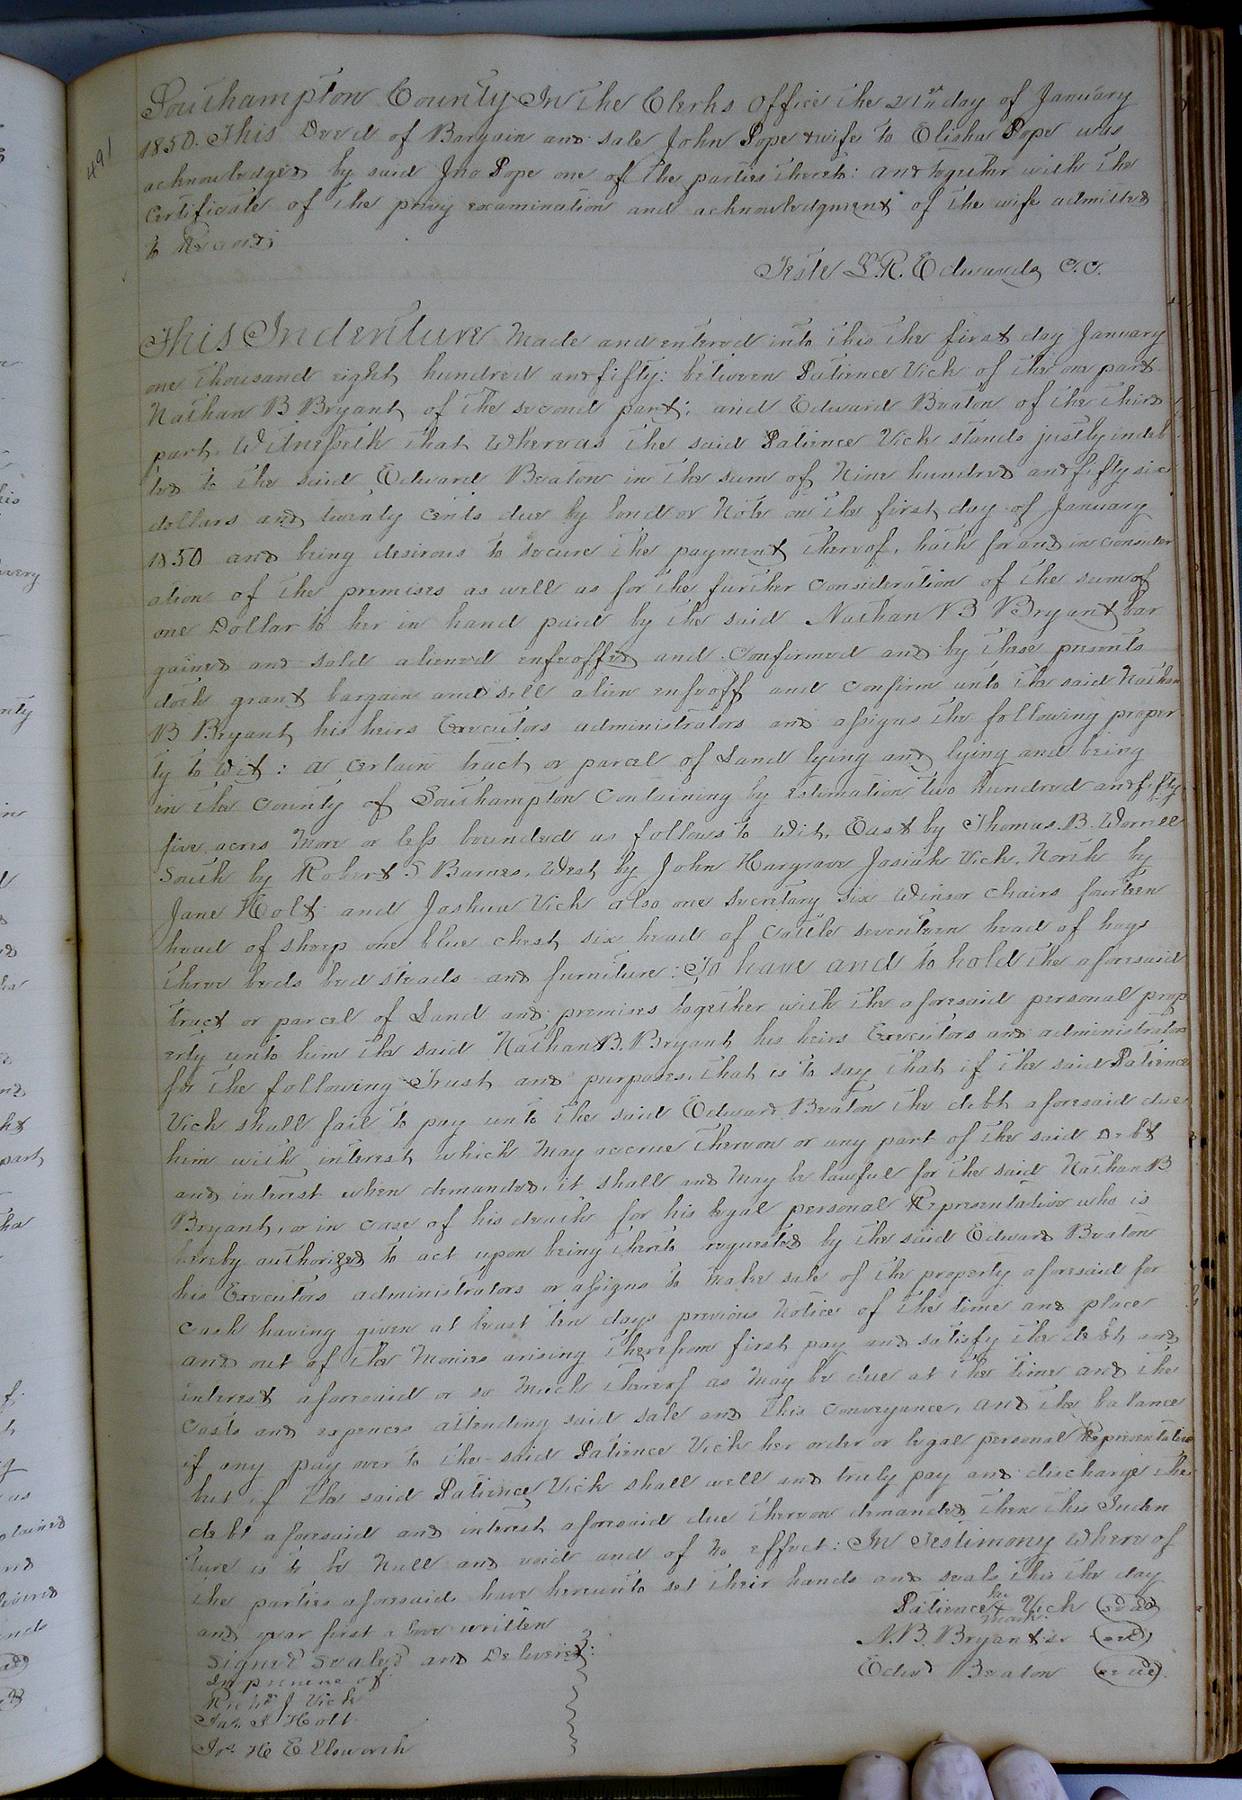 491
Southampton County In the Clerks Office the 21st day of January
1850. This Deed of Bargain and sale John Pope & wife to Elisha Pope was
acknowledged by said Jno Pope one of the parties thereto: and together with the
certificate of the privy examination and acknowledgment of the wife admitted
to Record;
Teste L. R. Edwards C.C.
This Indenture Made and entered into this the first day January
one thousand eight hundred and fifty: between Patience Vick of the one part
Nathan B Bryant of the second part; and Edward Beaton of the third
part. Witnesseth that Whereas the said Patience Vick stands justly indeb
ted to the said Edward Beaton in the sum of Nine hundred and fifty six
dollars and twenty cents due by bond or Note on the first day of January
1850 and being desirous to secure the payment thereof, hath for and in consider
ation of the premises as well as for the further consideration of the sum of
one Dollar to her in hand paid by the said Nathan B Bryant bar
gained and sold aliened enfeoffed and confirmed and by these presents
doth grant bargain and sell alien enfeoff and confirm unto the said Nathan
B Bryant his heirs Executors administrators and assigns the following proper
ty to wit: a certain tract or parcel of Land lying and lying and being
in the County of Southampton Containing by estimation two hundred and fifty
five acres More or less bounded as follows to wit, East by Thomas B. Worrell
South by Robert S Barnes, West by John Hargrave Josiah Vick, North by
Jane Holt and Joshua Vick also one Secretary six Winsor chairs fourteen
head of sheep one blue chest six head of cattle seventeen head of hogs
three beds bed steads and furniture: To have and to hold the aforesaid
tract or parcel of Land and premises together with the aforesaid personal prop
erty unto him the said Nathan B. Bryant his heirs Executors and administrators
for the following Trust and purposes, that is to say that if the said Patience
Vick shall fail to pay unto the said Edward Beaton the debt aforesaid due
him with interest which May accrue thereon or any part of the said Debt
and interest when demanded, it shall and May be lawful for the said Nathan B
Bryant, or in case of his death for his legal personal Representative who is
hereby authorized to act upon being thereto requested by the said Edward Beaton
his Executors administrators or assigns to Make sale of the property aforesaid for
cash having given at least ten days previous Notice of the time and place
and out of the Monies arising therefrom first pay and satisfy the debt and
interest aforesaid or so Much thereof as May be due at the time and the
costs and expences attending said sale and this Conveyance, and the balance
if any pay over to the said Patience Vick her order or legal personal Representative
but if the said Patience Vick shall well and truly pay and discharge the
debt aforesaid and interest aforesaid due thereon demanded then this Inden
ture is to be Null and void and of No effect: In Testimony Whereof
the parties aforesaid have hereunto set their hands and seals this the day
and year first above written
Patience her X mark Vick (seal)
Signed Sealed and Delivered:
N. B. Bryant (seal)
In presence of
Edwd Beaton (seal)
Richd J Vick
Jas. J Holt
Jos H Ellsworth